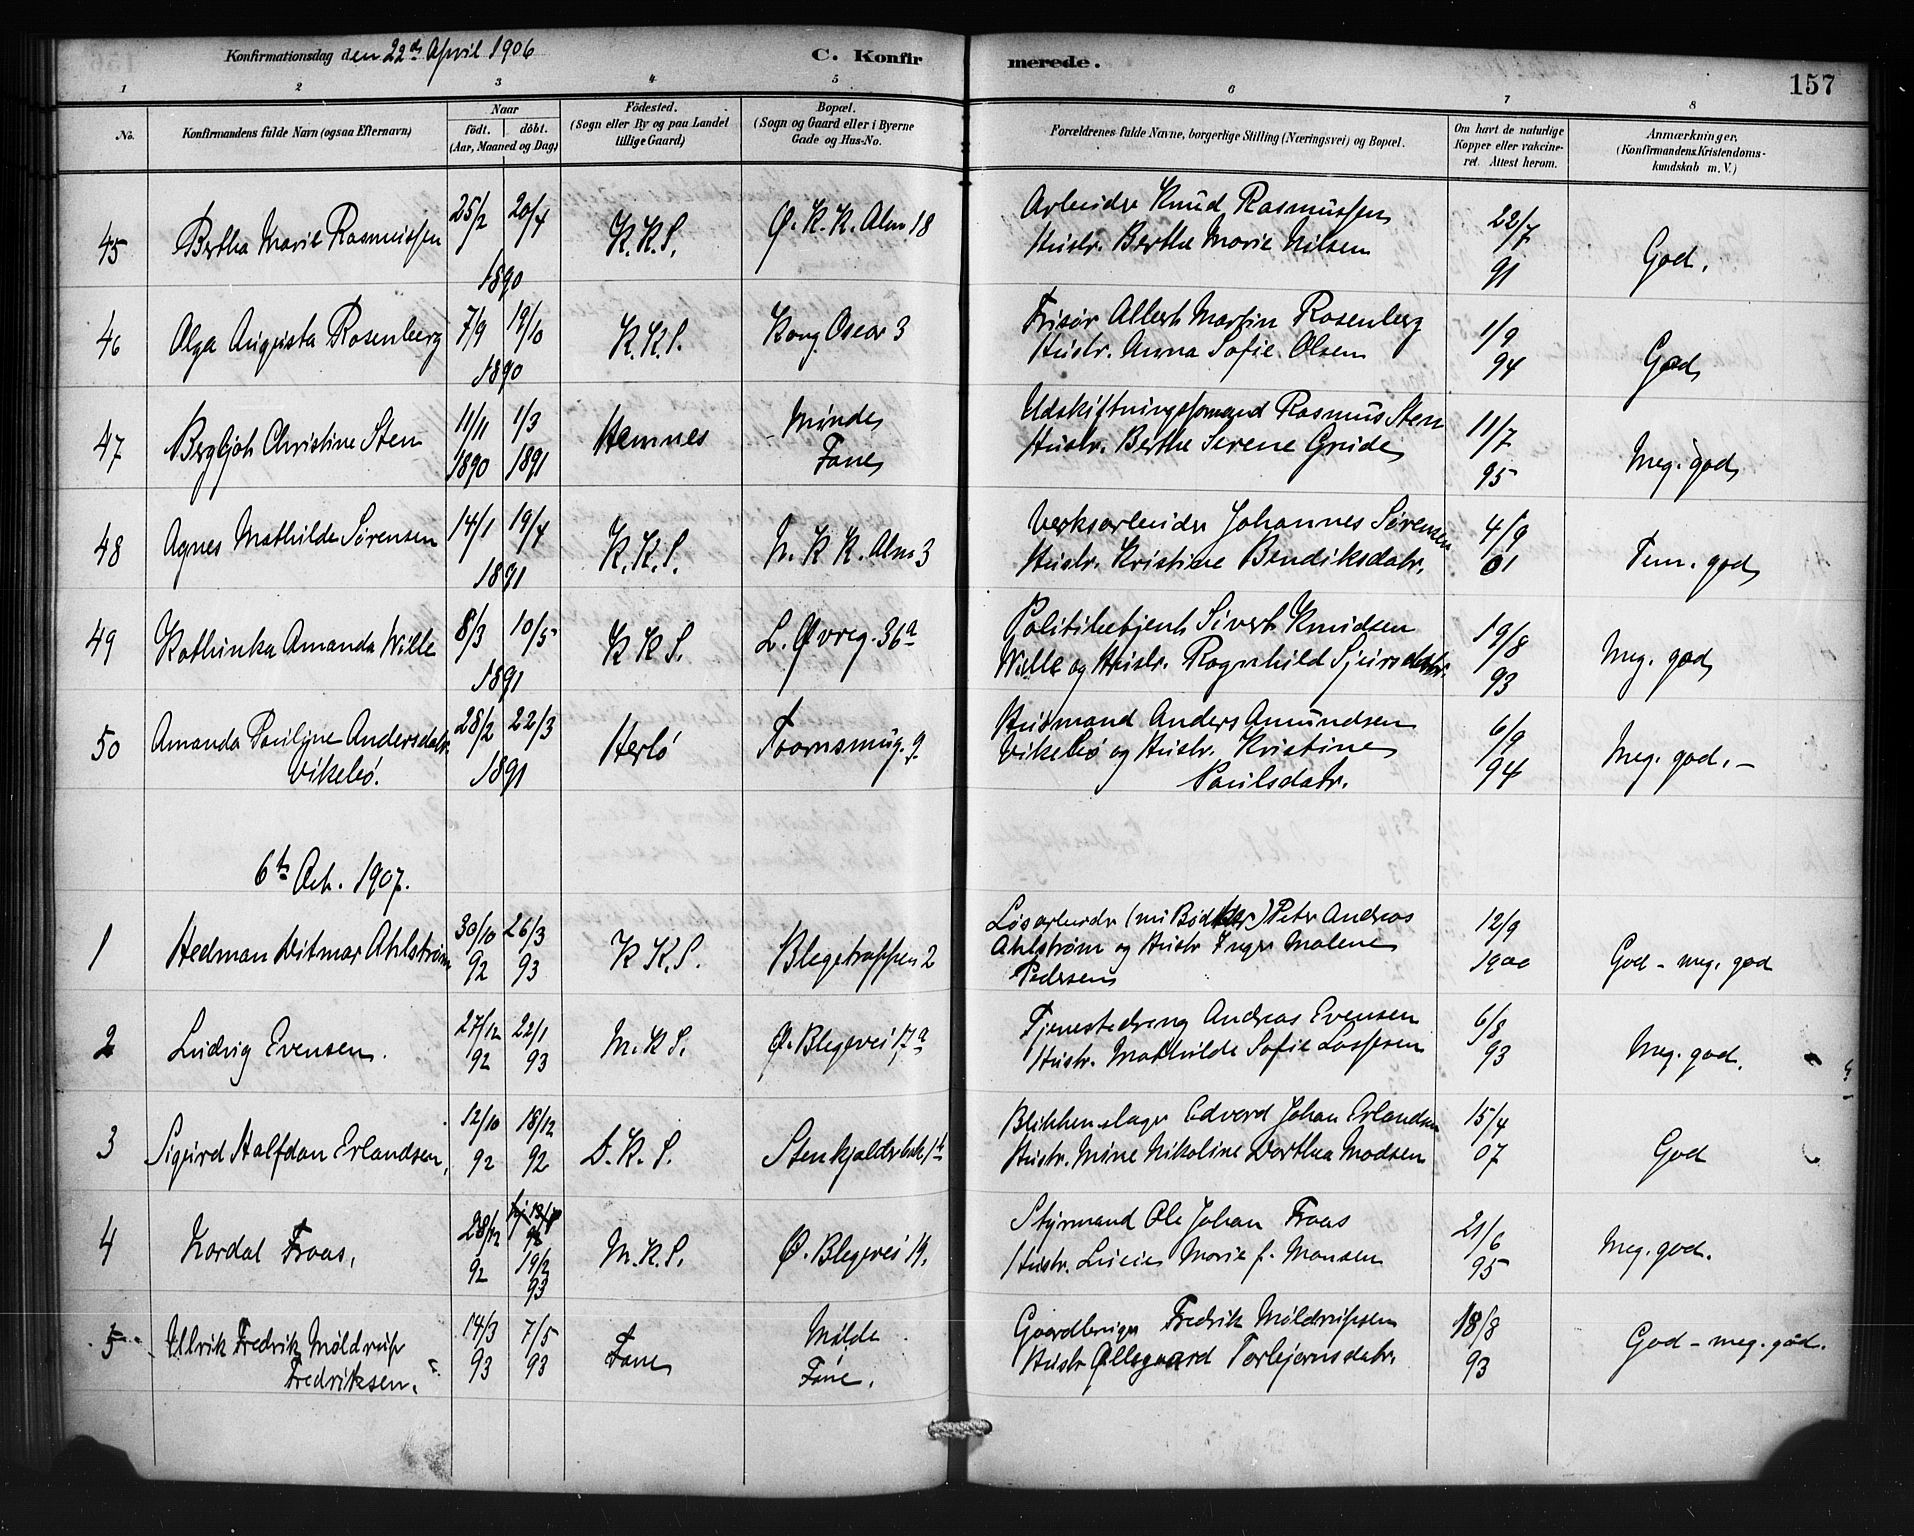 Konfirmationsdag den 22de April 1906
C. Konfirmerede.
157
1 2 3 4 5 6 7 8
No.
Konfirmandens fulde Navn (ogsaa Efternavn)
Naar
født. døbt.
(Aar, Maaned og Dag)
Fødested.
(Sogn eller By og paa Landet
tillige Gaard)
Bopæl.
(Sogn og Gaard eller i Byerne
Gade og Hus-No.
Forældrenes fulde Navne, borgerlige Stilling (Næringsvei) og Bopæl.
Om havt de naturlige
Kopper eller vakcine-
ret. Attest herom.
Anmærkninger.
(Konfirmandens Kristendoms-
kundskab m. V.)
45 Bertha Marie Rasmussen 25/2 20/4 1890 K.K.S. Ø. K. K. Alm 18
Arbeider Knud Rasmussen
Hustr. Berthe Marie Nilsen
22/7 91 God.
46 Olga Augusta Rosenberg 7/9 19/10 1890 K.K.S. Kong Oscar 3
Frisør Albert Martin Rosenberg
Hustr. Anna Sofie Olsen
1/9 94 God
47 Bergljot Christine Sten 11/11 1890 1/3 1891 Hemnes Minde
Fane
Udskiftningsformand Rasmus Sten
Hustr. Berthe Serene Grude
11/7 95 Meg. god
48 Agnes Mathilde Sørensen 14/1 19/4 1891 K.K.S. N. K K. Alm 3
Verksarbeider Johannes Sørensen
Hustr. Kristine Bendiksdatr.
4/9 01 Tem. god
49 Kathinka Amanda Wille 8/3 10/5 1891 K K S. L. Øvreg. 36a
Politibetjent Sivert Knudsen
Wille og Hustr. Ragnhild Sjursdatr.
19/8 93 Meg. god
50 Amanda Pauline Andersdatr.
Vikebø.
28/2 22/3 1891 Herlø
Husmand Anders Amundsen
Vikebø og Hustr. Kristine
Paulsdatr.
6/9 94 Meg. god.
6te Oct. 1907.
1 Hedman Ditmar Ahlstrøm 30/10 92 26/3 93 K K.S. Blegetrappen 2
Løsarbeider (nu Bødker) Peter Andreas
Ahlstrøm og Hustr Inger Malene
Pedersen
12/9 1900 God - meg. god
2 Ludvig Evensen. 27/12 92 22/1 93 M.K S. Ø. Blegevei 17a
Tjenestedreng Andreas Evensen
Hustr. Mathilde Sofie
6/8 93 Meg. god.
3 Sigurd Halfdan Erlandsen, 12/10 92 18/12 92 D.K.S. Stenkjælderbak. 1b
Blikkenslager Edvard Johan Erlandsen
Hustr. Mine Nikoline Dorthea Madsen
15/4 07 God
4 Nordal Fraas, 28/12 92 19/2 93 M.K.S. Ø. Blegevei 19.
Styrmand Ole Johan Fraas
Hustr. Lucie Marie f. Monsen
21/6 95 Meg. god.
5 Ulrik Fredrik Møldrup
Fredriksen.
14/3 93 7/5 93 Fane Midle
Fane.
Gaardbruger Fredrik Møldrupsen
Hustr Ollegaard Torbjørnsdatr.
18/8 93 God - meg. god.